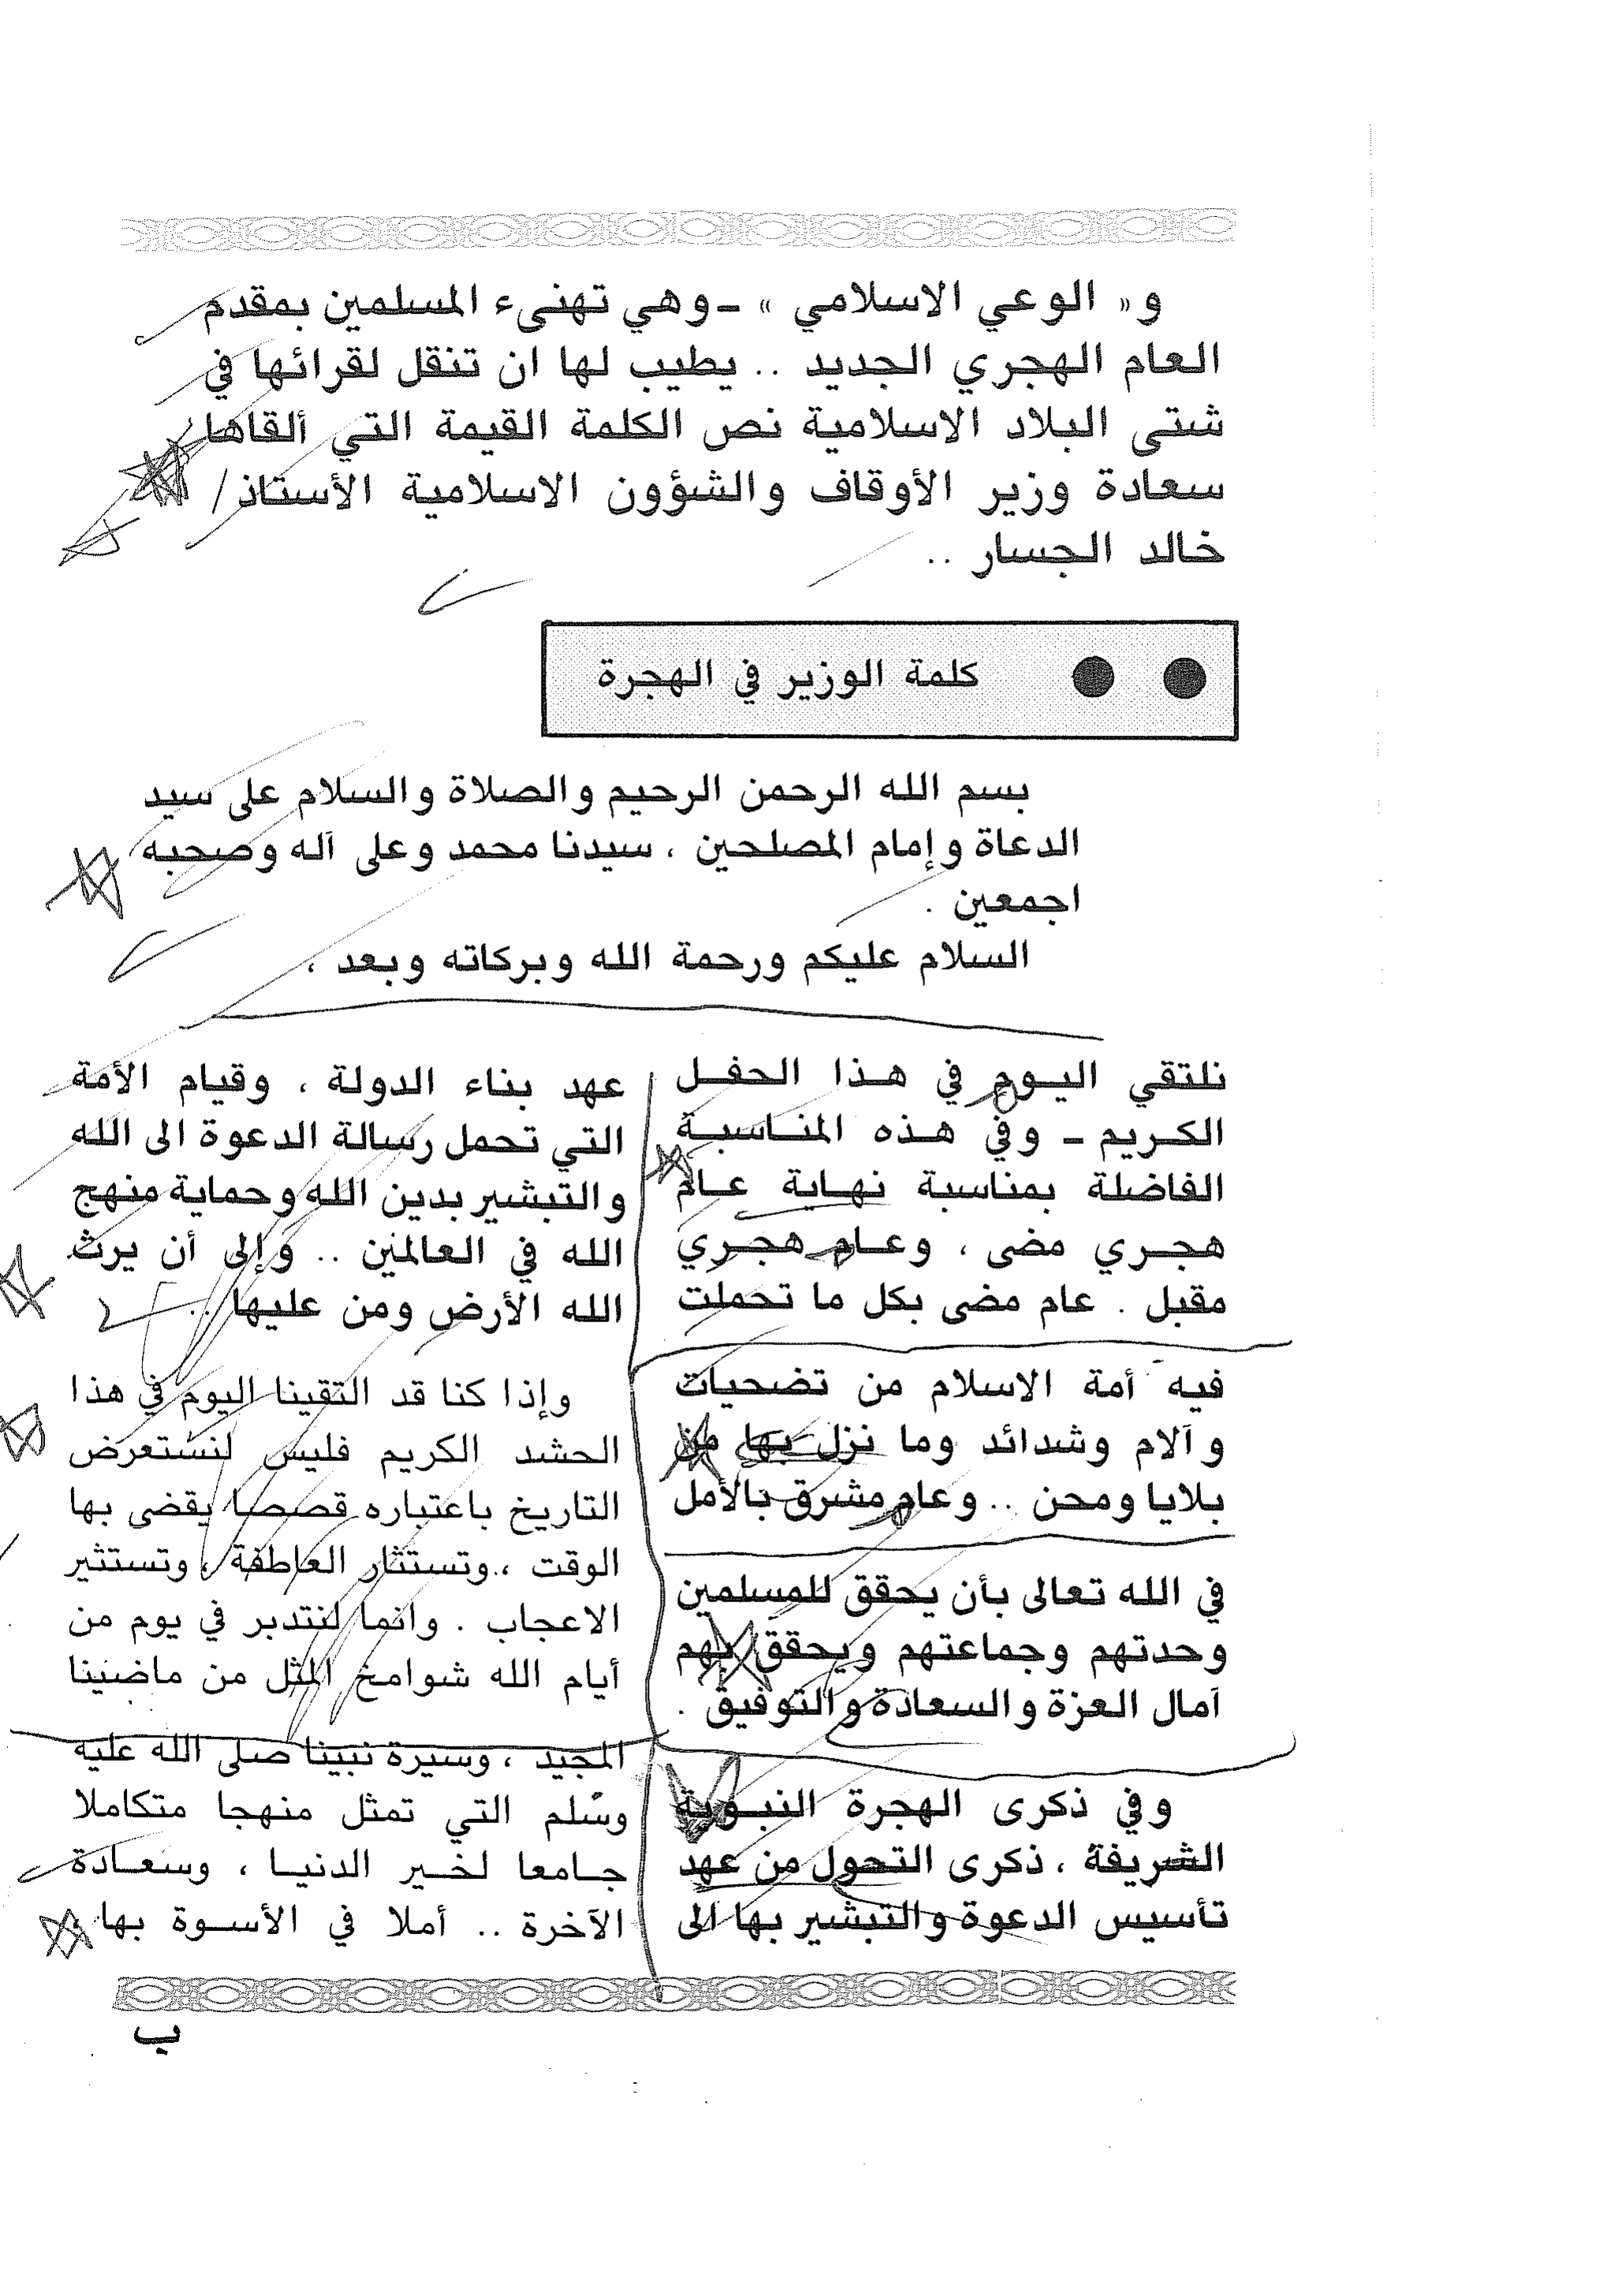 و« الوعي الاسلامي » ـ وهي تهنىء المسلمين بمقدم
العام الهجري الجديد .. يطيب لها ان تنقل لقرائها في
شتى البلاد الاسلامية نص الكلمة القيمة التي ألقاها
سعادة وزير الأوقاف والشؤون الاسلامية الأستاذ/
خالد الجسار ..
كلمة الوزير في الهجرة
بسم الله الرحمن الرحيم والصلاة والسلام على سيد
الدعاة وإمام المصلحين ، سيدنا محمد وعلى آله وصحبه
اجمعين .
السلام عليكم ورحمة الله وبركاته وبعد ،
نلتقي اليـوم في هـذا الحفـل
الكـريم ـ وفي هـذه المنـاسبـة
الفاضلة بمناسبة نهـاية عـام
هجـري مضى ، وعـام هجـري
مقبل . عام مضى بكل ما تحملت
فيه أمة الاسلام من تضحيات
وآلام وشدائد وما نزل بها من
بلايا ومحن .. وعام مشرق بالأمل
في الله تعالى بأن يحقق للمسلمين
وحدتهم وجماعتهم ويحقق بهم
آمال العزة والسعادة والتوفيق .
وفي ذكرى الهجرة النبـوية
الشريفة ، ذكرى التحول من عهد
تأسيس الدعوة والتبشير بها الى
عهد بناء الدولة ، وقيام الأمة
التي تحمل رسالة الدعوة الى الله
والتبشير بدين الله وحماية منهج
الله في العالمين .. وإلى أن يرث
الله الأرض ومن عليها ..
وإذا كنا قد التقينا اليوم في هذا
الحشد الكريم فليس لنستعرض
التاريخ باعتباره قصصا يقضى بها
الوقت ، وتستثار العاطفة ، وتستثير
الاعجاب . وانما لنتدبر في يوم من
أيام الله شوامخ المثل من ماضينا
المجيد ، وسيرة نبينا صلى الله عليه
وسلم التي تمثل منهجا متكاملا
جـامعا لخـير الدنيـا ، وسعـادة
الآخرة .. أملا في الأسـوة بها
ب